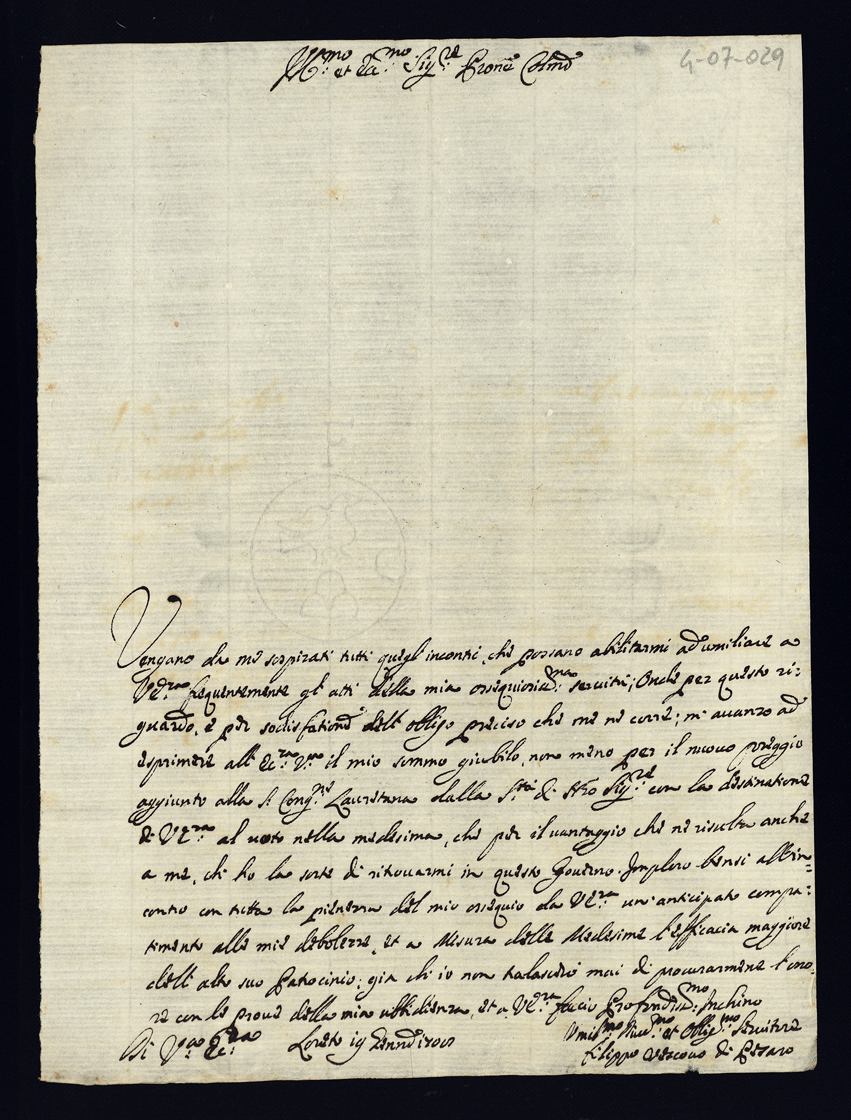 Ill.mo et Ecc.mo Sig.re Prone Colmo
4-07-029
Vengano da me sospirati tutti quegl'incontri, che possano abilitarmi ad umiliare a
V.Ecc.za frequentemente gl'atti della mia ossequiosiss.ma servitù; Onde per questo ri=
guardo, e per sodisfatione dell'obligo preciso che me ne corre; m'avanzo ad
esprimere all'Ecc.za V.ra il mio sommo giubilo, non meno per il nuovo preggio
aggiunto alla S. Cong.ne Lauretana dalla S.tà di N.ro Sig.re con la destinatione
di V.Ecc.za al voto nella medesima, che per il vantaggio che ne risulta anche
a me, ch'ho la sorte di ritrovarmi in questo Governo. Imploro bensi all'in=
contro con tutta la pienezza del mio ossequio da V.Ecc.za un'anticipato compa=
timento alle mie debolezze, et a Misura delle Medesime l'efficacia maggiore
dell'alto suo Patrocinio; gia ch'io non tralascierò mai di procurarmene l'ono=
re con le prove della mia ubbidienza, et a V.Ecc.za faccio Profondiss.mo Inchino
Di V.ra Ecc.za Loreto 19
Umil.mo Div.mo et Oblig.mo Servitore
Filippo Vescovo di Pesaro